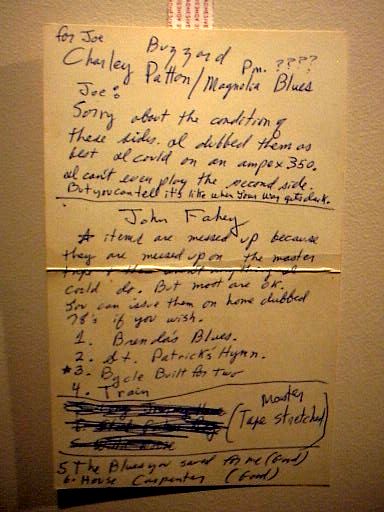 for Joe
Buzzard
Charley Patton / Magnolia Blues
P.m. ????
Joe:
Sorry about the condition of
these sides. I dubbed them as
best I could on an ampex 350.
I can't even play the second side.
But you can tell it's like when your way gets dark.
John Fahey
* items are messed up because
they are messed up on the master
could do. But most are OK.
You can issue them on home dubbed
78's if you wish.
1. Brenda's Blues.
2. St. Patrick's Hymn.
*3. Bycle Built for two
4. Train
(Master
Tape stretched)
5. The Blues you saved for me (Good)
6. House Carpenter (Good)